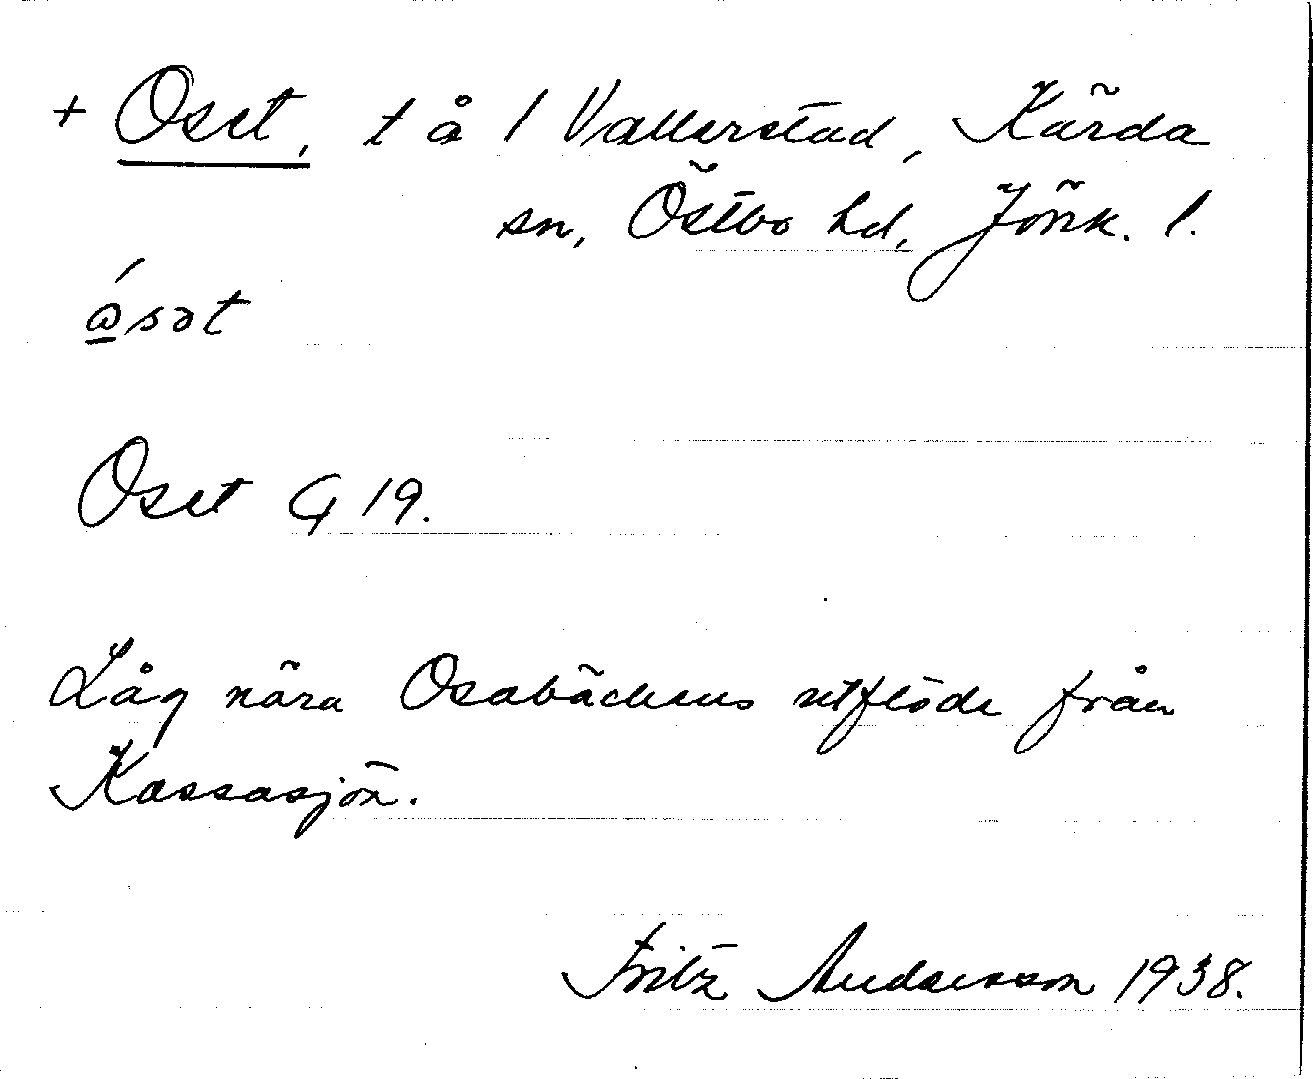 + Oset, t å 1 Vallerstad, Kärda
sn, Östbo hd, Jönk. l.
ǻsət
Oset G 19.
Låg nära Osabäckens utflöde från
Kassasjön.
Fritz Andersson 1938.